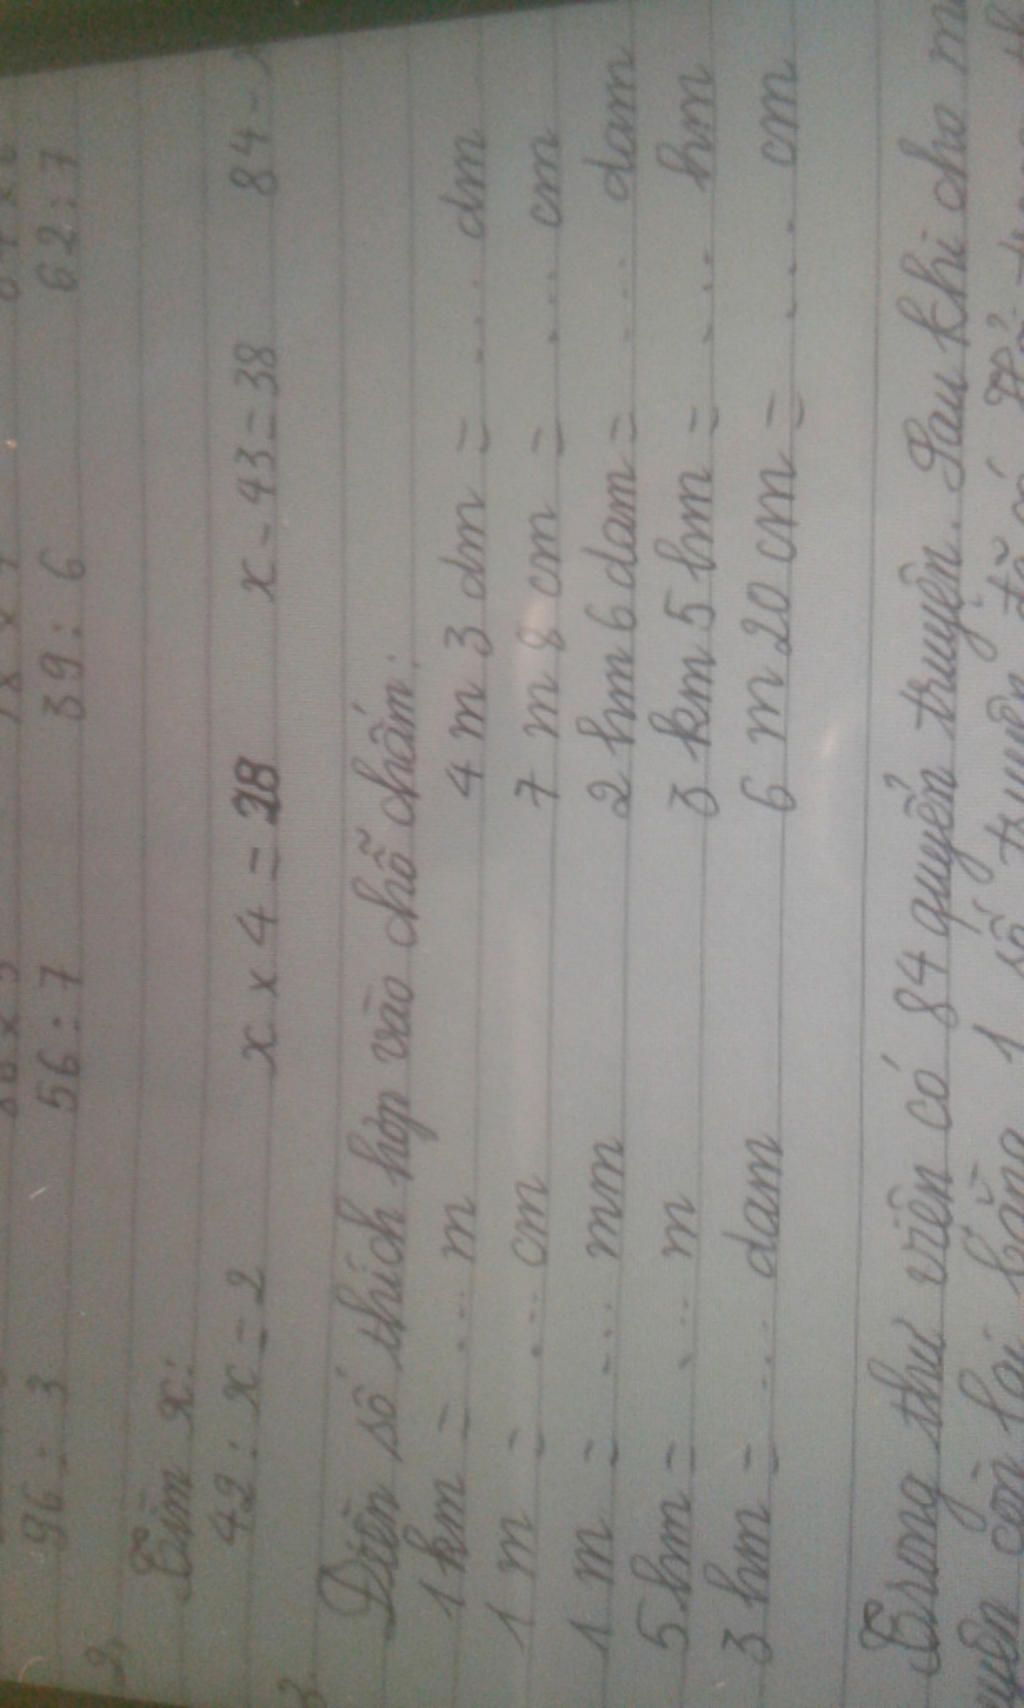 96 : 3 56 : 7 39 : 6 62 : 7
2,
Tìm x:
42 : x = 2 x x 4 = 28 x - 43 = 38 84 -
3.
Điền số thích hợp vào chỗ chấm:
1 km = ... m 4 m 3 dm = ... dm
1 m = ... cm 7 m 8 cm = ... cm
1 m = ... mm 2 hm 6 dam = ... dam
5 hm = ... m 3 km 5 hm = ... hm
3 hm = ... dam 6 m 20 cm = ... cm
Trong thư viện có 84 quyển truyện. Sau khi cho
còn lại bằng 1 số truyện đã có. Hỏi trong